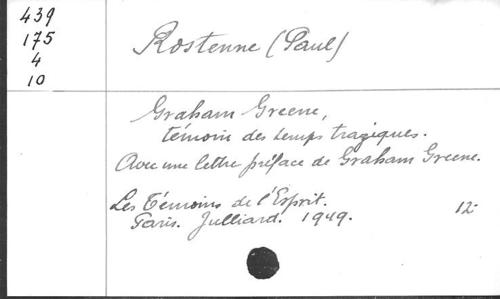 439
175
4
10
Rostenne (Paul)
Graham Greene,
témoin des temps tragiques.
Avec une lettre préface de Graham Greene.
Les Témoins de l'Esprit.
Paris. Julliard. 1949. 12-